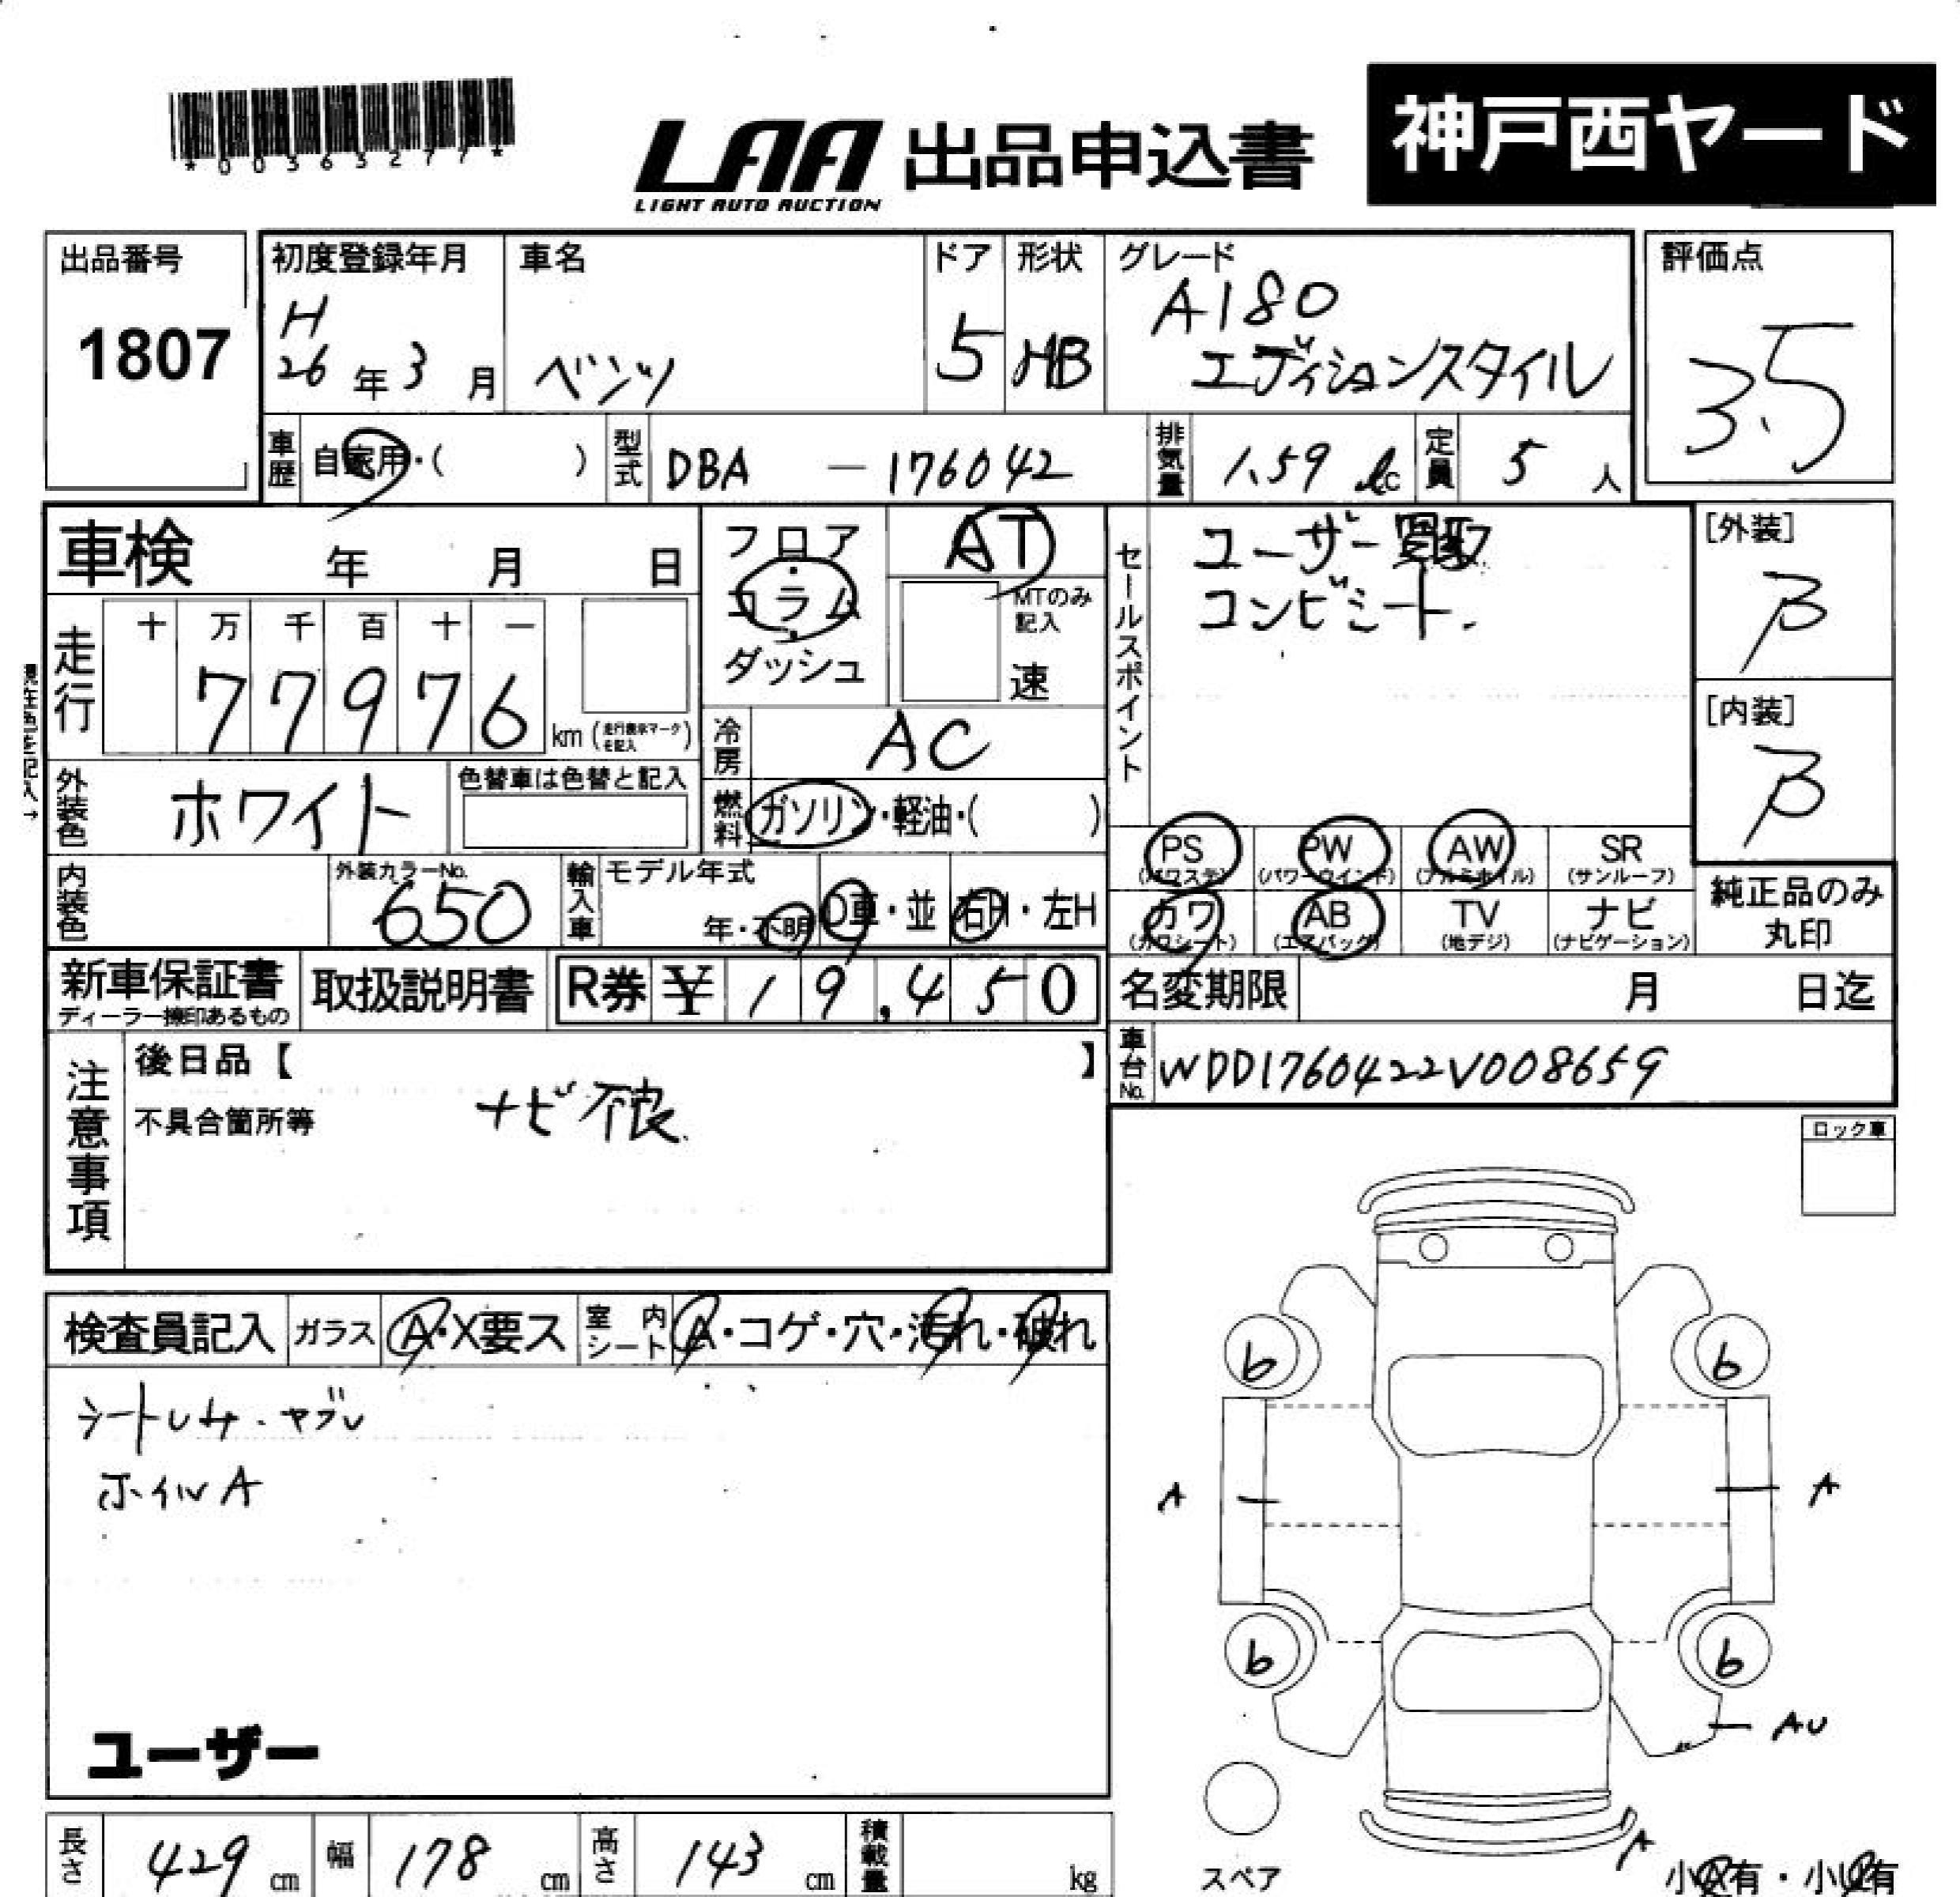 *00363277*
LAA 出品申込書
LIGHT AUTO AUCTION
神戸西ヤード
出品番号
1807
初度登録年月
H
26年3月
車名
ベンツ
ドア
5
形状
HB
グレード
A180
エディションスタイル
評価点
3.5
車歴 自家用・( )
型式 DBA — 176042
排気量 1.59 ℓ
定員 5 人
車検 年 月 日
走行
十 万 千 百 十 一
7 7 9 7 6 km (走行表示マークを記入)
現在色を記入→
外装色 ホワイト
色替車は色替と記入
内装色
外装カラーNo.
650
フロア・コラム・ダッシュ
AT
MTのみ記入
速
冷房 AC
燃料 ガソリン・軽油・( )
輸入車 モデル年式
年・不明 D車・並 右H・左H
セールスポイント
ユーザー買取
コンビシート.
[外装]
B
[内装]
B
PS (パワステ) PW (パワーウインド) AW (アルミホイル) SR (サンルーフ)
カワ (カワシート) AB (エアバッグ) TV (地デジ) ナビ (ナビゲーション)
純正品のみ丸印
新車保証書
ディーラー捺印あるもの
取扱説明書
R券 ¥ 19,450
名変期限 月 日迄
車台No. WDD1760422V008659
注意事項
後日品【 】
不具合箇所等
ナビ不良.
ロック車
検査員記入 ガラス A・X要ス 室内シート A・コゲ・穴・汚れ・破れ
シートレサ・ヤブレ
ホイルA
ユーザー
b b
A A
b b
AU
A
スペア
小A有・小U有
長さ 429 cm
幅 178 cm
高さ 143 cm
積載量 kg